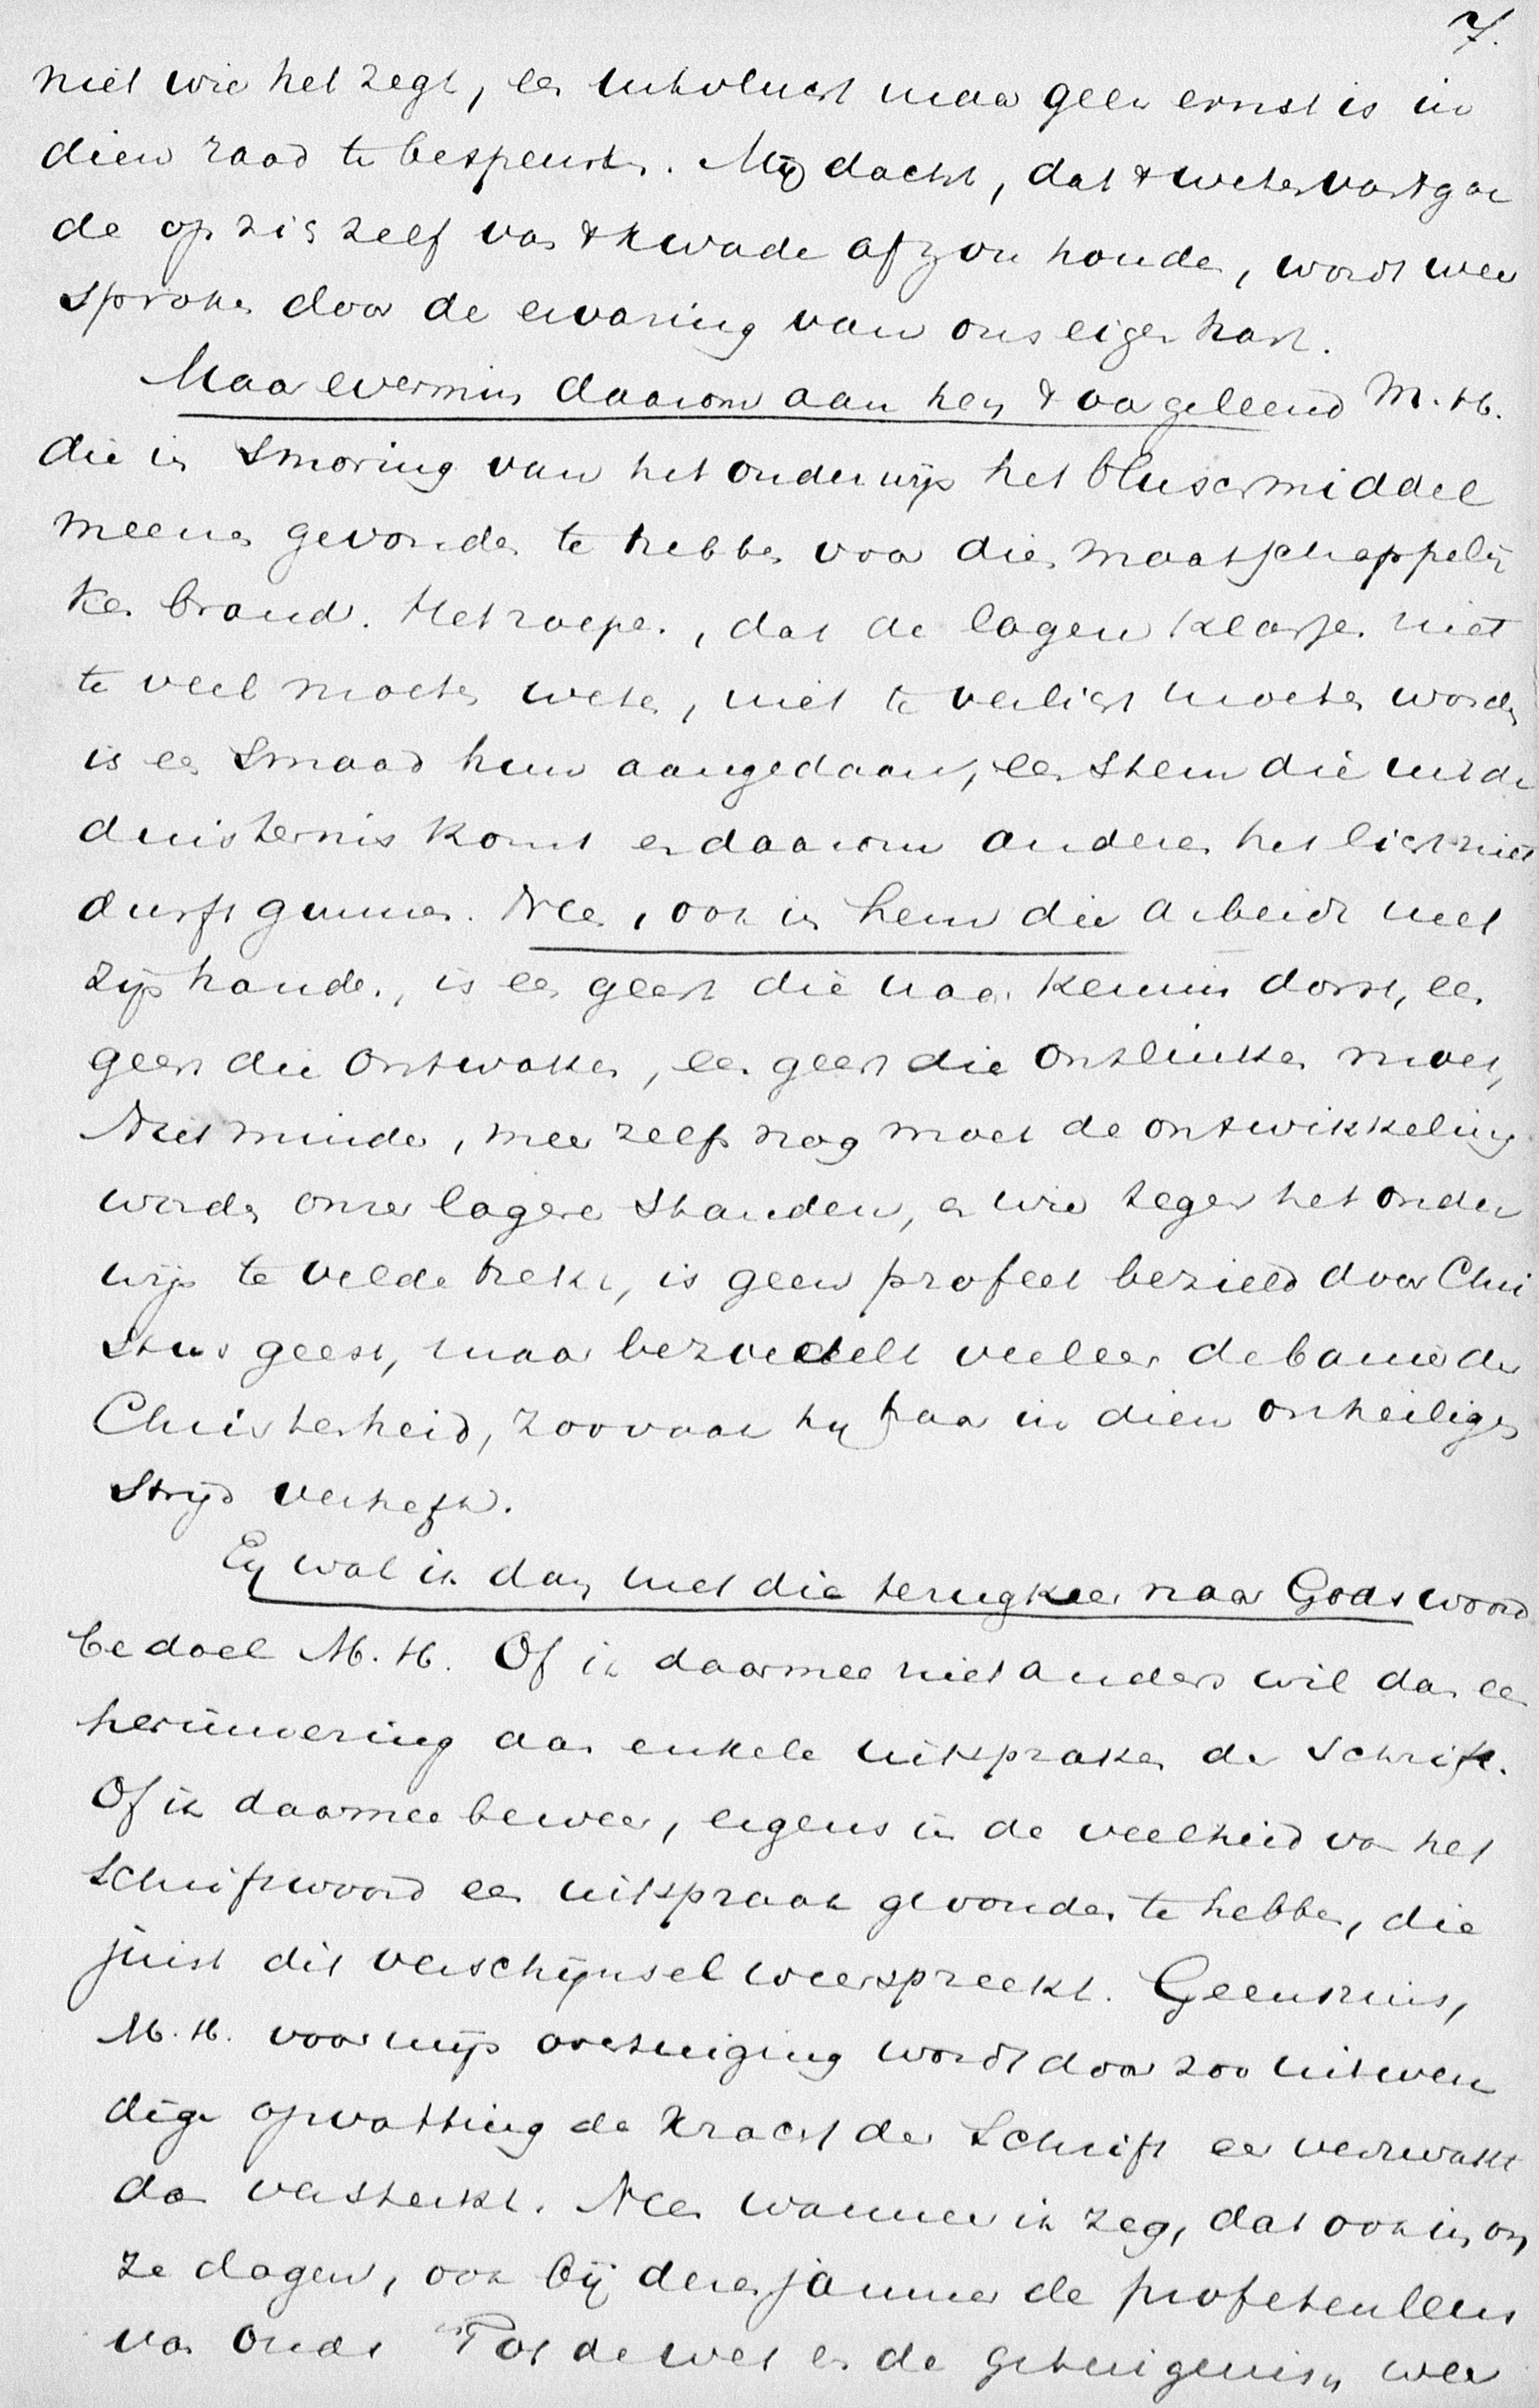 7.
niet wie het zegt, en uitvlucht maar geen ernst is in
dien raad te bespeuren. Mij dacht, dat 't weten van 't goe
de op zich zelf van 't kwade af zou houden, wordt weer
sproken door de ervaring van ons eigen hart.
Maar evenmin daarom aan hen 't oor geleend M. H.
die in smoring van het onderwijs het bluschmiddel
meenen gevonden te hebben voor dien maatschappelij
ken brand. Het roepen, dat de lagere klassen niet
te veel moeten weten, niet te verlicht moeten worden
is een smaad hun aangedaan, een stem die uit de
duisternis komt en daarom anderen het licht niet
durft gunnen. Neen, ook in hem die arbeidt met
zijn handen, is een geest die naar kennis dorst, een
geest die ontwaken, een geest die ontluiken moet,
Niet minder, meer zelfs nog moet de ontwikkeling
worden onzer lagere standen, en wie tegen het onder
wijs te velde trekt, is geen profeet bezield door Chri
stus geest, maar bezoedelt veeleer de banier der
Christenheid, zoovaak hij haar in dien onheiligen
strijd verheft.
En wat ik dan met die terugkeer naar Gods woord
bedoel M. H. Of ik daarmee niet anders wil dan een
herinnering aan enkele uitspraken der Schrift.
Of ik daarmee beweer, ergens in de veelheid van het
Schriftwoord een uitspraak gevonden te hebben, die
juist dit verschijnsel weerspreekt. Geenszins,
M. H. voor mijn overtuiging wordt door zoo uitwen
dige opvatting de kracht der Schrift eer verzwakt
dan versterkt. Neen wanneer ik zeg, dat ook in on
ze dagen, ook bij dezen jammer de profetenleus
van ouds "Tot de wet en de getuigenis" weer